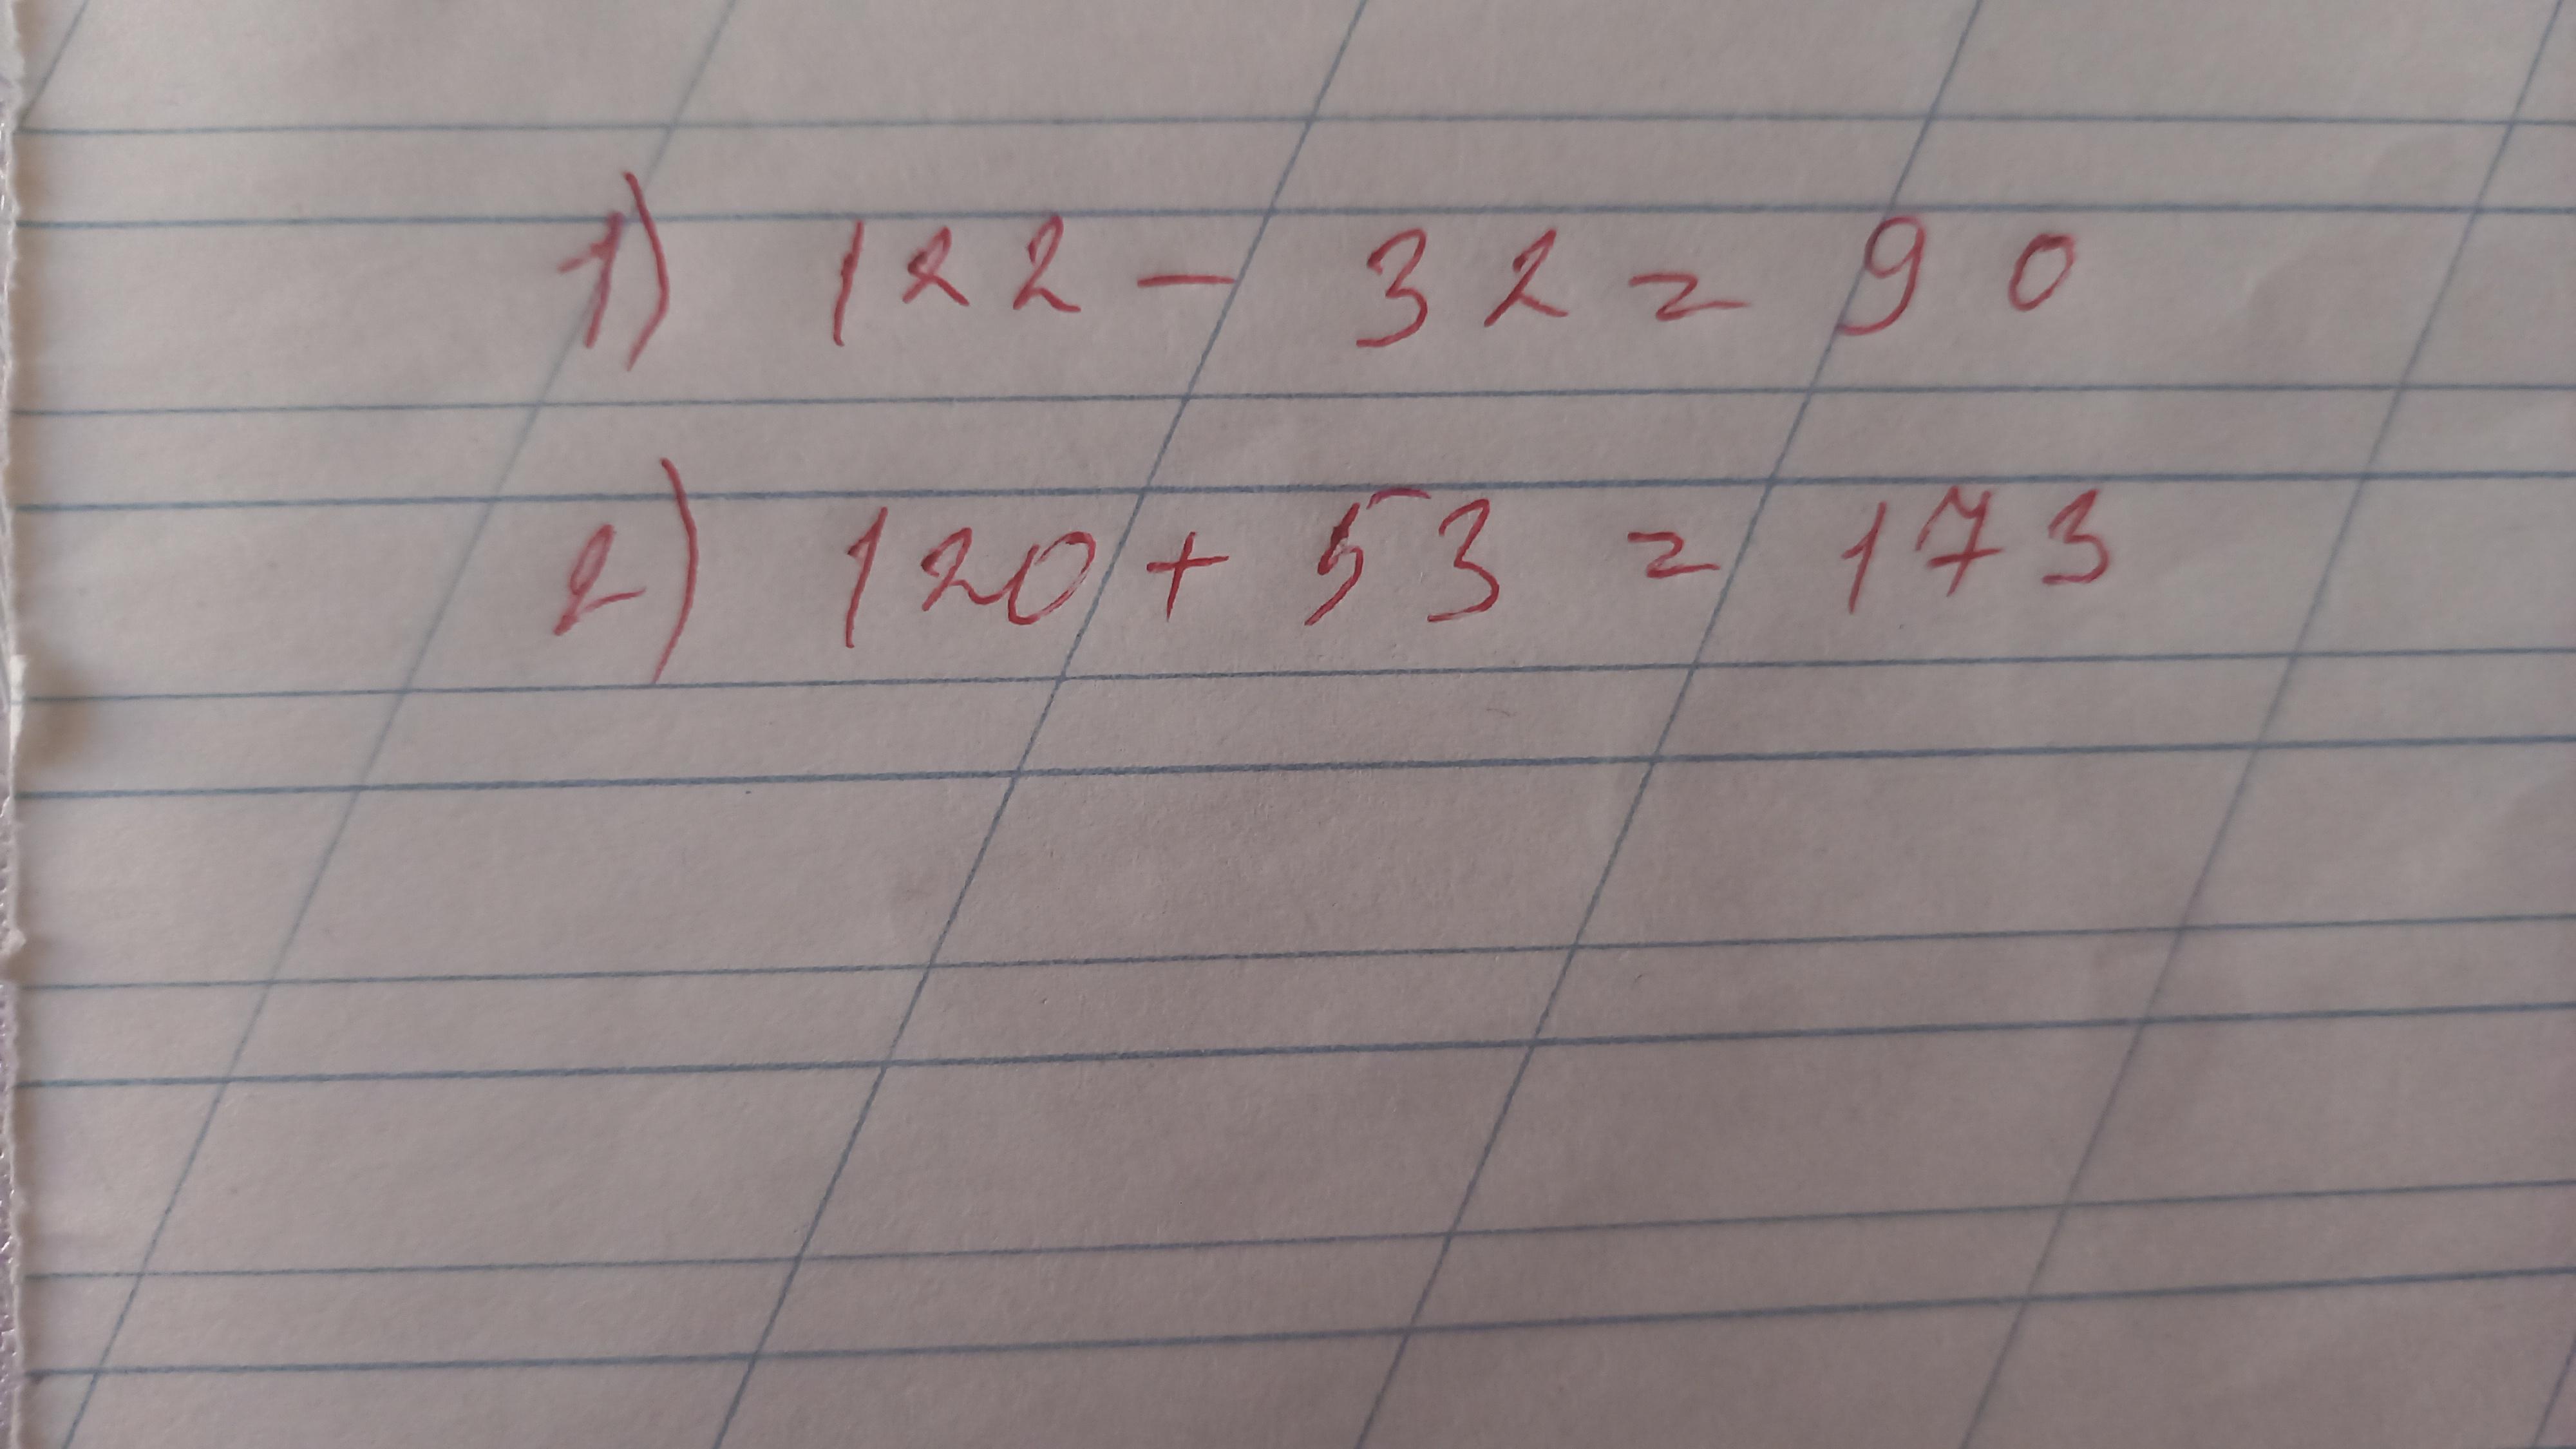 1) 122 - 32 = 90
2) 120 + 53 = 173